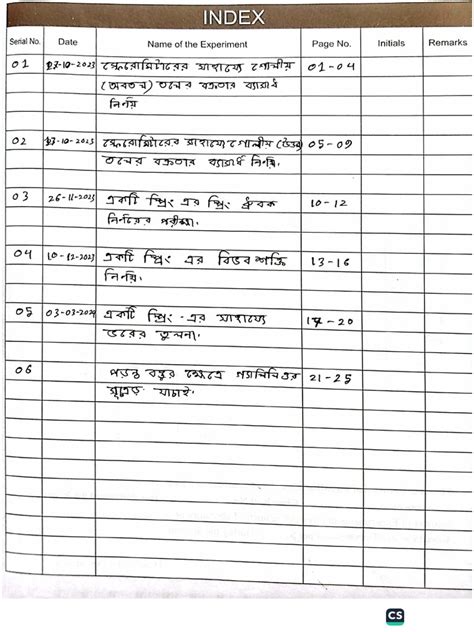 INDEX
Serial No. Date Name of the Experiment Page No. Initials Remarks
01 27-10-2023 স্ফেরোমিটারের সাহায্যে গোলীয় 01-04
(অবতল) তলের বক্রতার ব্যাসার্ধ
নির্ণয়
02 -10-2023 স্ফেরোমিটারের সাহায্যে গোলীয় (উত্তল) 05-09
তলের বক্রতার ব্যাসার্ধ নির্ণয়।
03 26-11-2023 একটি স্প্রিং এর স্প্রিং ধ্রুবক 10-12
নির্ণয়ের পরীক্ষা।
04 10-12-2023 একটি স্প্রিং এর বিভব শক্তি 13-16
নির্ণয়।
05 03-03-2024 একটি স্প্রিং-এর সাহায্যে 17-20
ভরের তুলনা।
06 পড়ন্ত বস্তুর ক্ষেত্রে গ্যালিলিওর 21-25
সূত্রের যাচাই।
CS